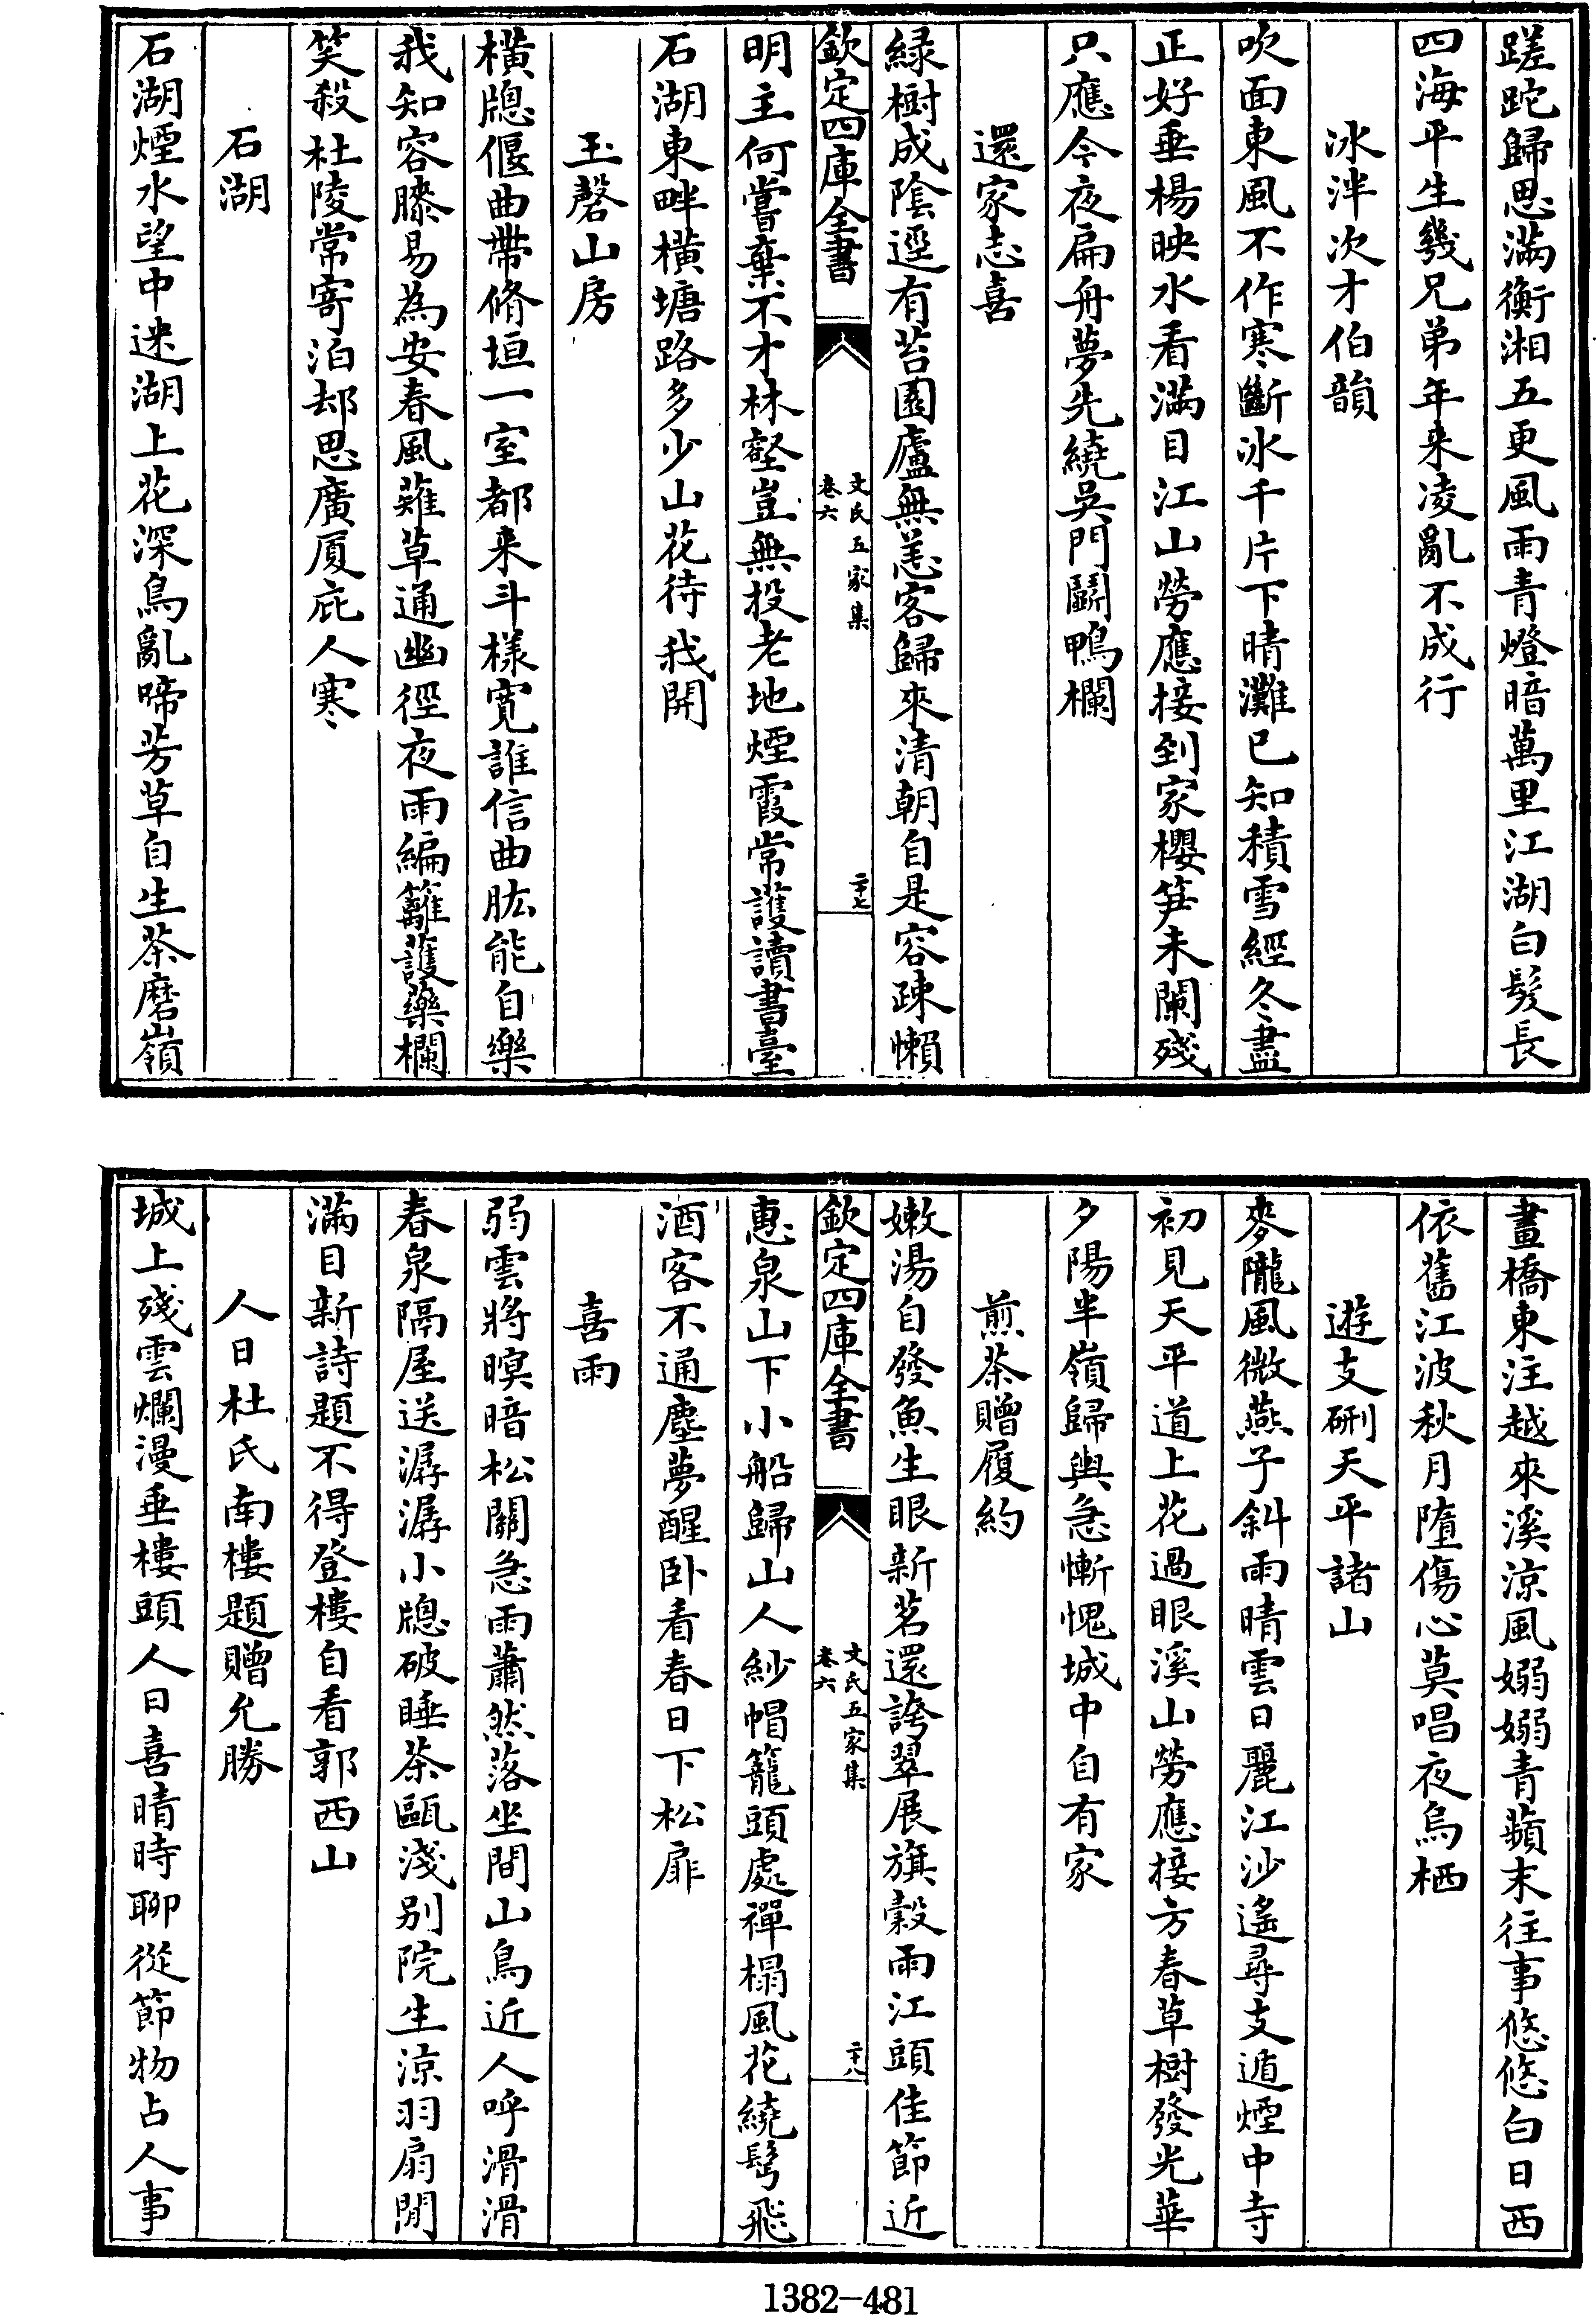 蹉跎歸思滿衡湘五更風雨青燈暗萬里江湖白髮長
四海平生幾兄弟年来凌亂不成行
冰泮次才伯韻
吹面東風不作寒斷冰千片下晴灘已知積雪經冬盡
正好垂楊映水看滿目江山勞應接到家櫻笋未闌殘
只應今夜扁舟夢先繞吳門鬭鴨欄
還家志喜
緑樹成陰逕有苔園廬無恙客歸來清朝自是容疎懶
欽定四庫全書
文氏五家集
卷六
二十七
明主何嘗棄不才林壑豈無投老地煙霞常護讀書臺
石湖東畔橫塘路多少山花待我開
玉磬山房
橫牕偃曲帶脩垣一室都来斗樣寛誰信曲肱能自樂
我知容膝易為安春風薙草通幽徑夜雨編籬護藥欄
笑殺杜陵常寄泊却思廣厦庇人寒
石湖
石湖煙水望中迷湖上花深鳥亂啼芳草自生茶磨嶺
畫橋東注越來溪涼風嫋嫋青蘋末往事悠悠白日西
依舊江波秋月墮傷心莫唱夜烏栖
遊支硎天平諸山
麥隴風微燕子斜雨晴雲日麗江沙遙尋支遁煙中寺
初見天平道上花過眼溪山勞應接方春草樹發光華
夕陽半嶺歸輿急慚愧城中自有家
煎茶贈履約
嫩湯自發魚生眼新茗還誇翠展旗穀雨江頭佳節近
欽定四庫全書
文氏五家集
卷六
二十八
惠泉山下小船歸山人紗帽籠頭處禪榻風花繞鬂飛
酒客不通塵夢醒卧看春日下松扉
喜雨
弱雲將暝暗松關急雨蕭然落坐間山鳥近人呼滑滑
春泉隔屋送潺潺小牕破睡茶甌淺別院生涼羽扇閒
滿目新詩題不得登樓自看郭西山
人日杜氏南樓題贈允勝
城上殘雲爛漫垂樓頭人日喜晴時聊從節物占人事
1382-481